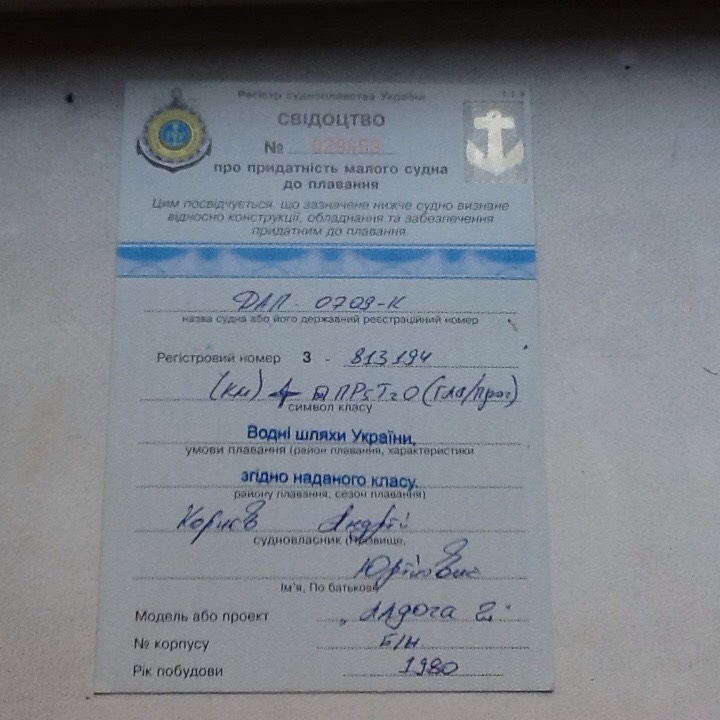 Регістр судноплавства України
СВІДОЦТВО
№ 029463
про придатність малого судна
до плавання
Цим посвідчується, що зазначене нижче судно визнане
відносно конструкції, обладнання та забезпечення
придатним до плавання.
ДАП - 0709-К
назва судна або його державний реєстраційний номер
Регістровий номер 3 - 813194
(км)
символ класу
Водні шляхи України,
умови плавання (район плавання, характеристики
згідно наданого класу.
району плавання, сезон плавання)
Андрій
судновласник (Прізвище,
Юрійович
Ім'я, По батькові)
Модель або проект
№ корпусу б/н
Рік побудови 1980